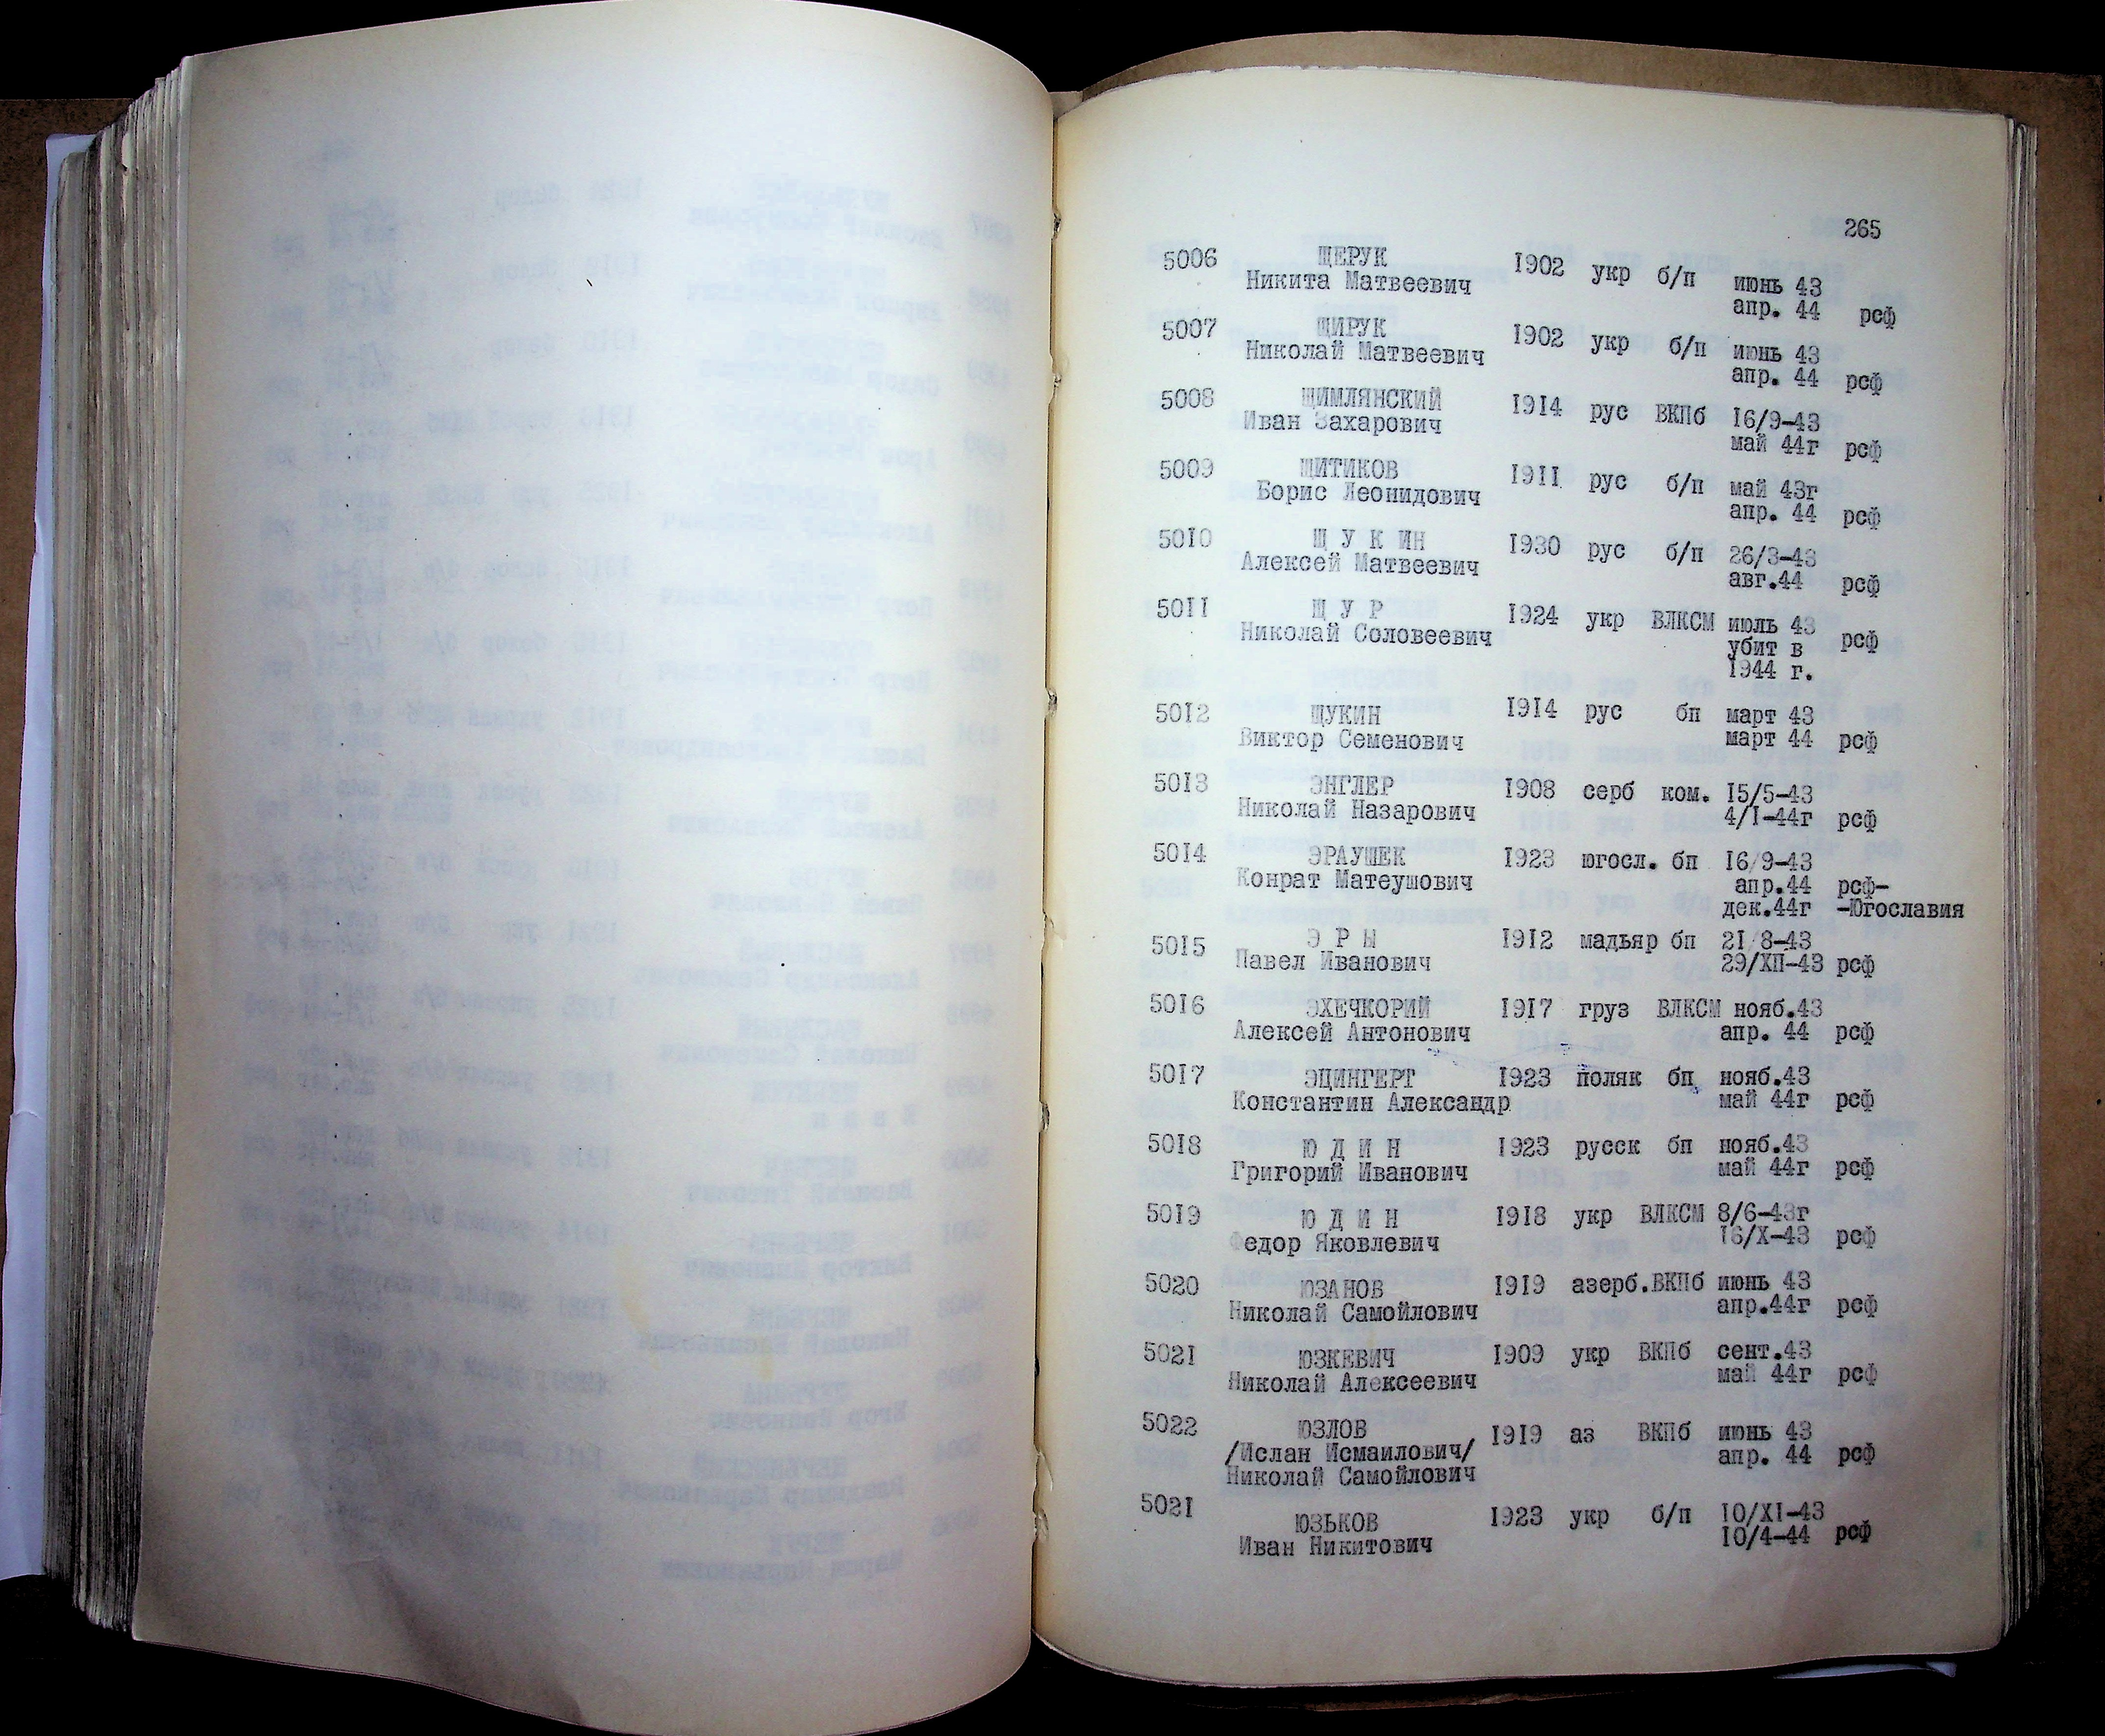 265
5006 ЩЕРУК 1902 укр б/п июнь 43
Никита Матвеевич апр. 44 рсф
5007 ЩИРУК 1902 укр б/п июнь 43
Николай Матвеевич апр. 44 рсф
5008 ЩИМЛЯНСКИЙ 1914 рус ВКПб 16/9-43
Иван Захарович май 44г рсф
5009 ЩИТИКОВ 1911 рус б/п май 43г
Борис Леонидович апр. 44 рсф
5010 Щ У К ИН 1930 рус б/п 26/3-43
Алексей Матвеевич авг.44 рсф
5011 Щ У Р 1924 укр ВЛКСМ июль 43 рсф
Николай Соловеевич убит в
1944 г.
5012 ЩУКИН 1914 рус бп март 43
Виктор Семенович март 44 рсф
5013 ЭНГЛЕР 1908 серб ком. 15/5-43
Николай Назарович 4/1-44г рсф
5014 ЭРАУШЕК 1923 югосл. бп 16/9-43
Конрат Матеушович апр.44 рсф-
дек.44г -Югославия
5015 Э Р Ы 1912 мадьяр бп 21/8-43
Павел Иванович 29/ХП-43 рсф
5016 ЭХЕЧКОРИЙ 1917 груз ВЛКСМ нояб.43
Алексей Антонович апр. 44 рсф
5017 ЭЦИНГЕРТ 1923 поляк бп нояб.43
Константин Александр май 44г рсф
5018 Ю Д И Н 1923 русск бп нояб.43
Григорий Иванович май 44г рсф
5019 Ю Д И Н 1918 укр ВЛКСМ 8/6-43г
Федор Яковлевич 16/Х-43 рсф
5020 ЮЗАНОВ 1919 азерб.ВКПб июнь 43
Николай Самойлович апр.44г рсф
5021 ЮЗКЕВИЧ 1909 укр ВКПб сент.43
Николай Алексеевич май 44г рсф
5022 ЮЗЛОВ 1919 аз ВКПб июнь 43
/Ислан Исмаилович/ апр. 44 рсф
Николай Самойлович
5021 ЮЗЬКОВ 1923 укр б/п 10/XI-43
Иван Никитович 10/4-44 рсф